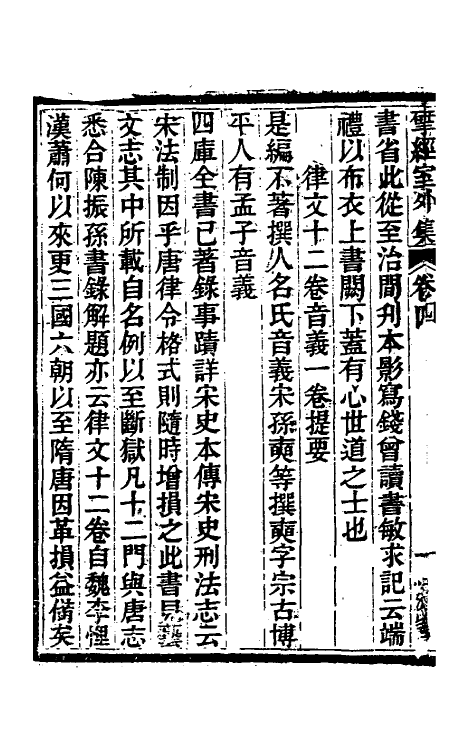 揅經室外集
卷四
一
書省此從至治間刋本影寫錢曾讀書敏求記云端
禮以布衣上書闕下蓋有心世道之士也
律文十二卷音義一卷提要
是編不著撰人名氏音義宋孫奭等撰奭字宗古博
平人有孟子音義
四庫全書已著錄事蹟詳宋史本傳宋史刑法志云
宋法制因乎唐律令格式則隨時增損之此書
文志其中所載自名例以至斷獄凡十二門與唐志
悉合陳振孫書錄解題亦云律文十二卷自魏李悝
漢蕭何以來更三國六朝以至隋唐因革損益備矣